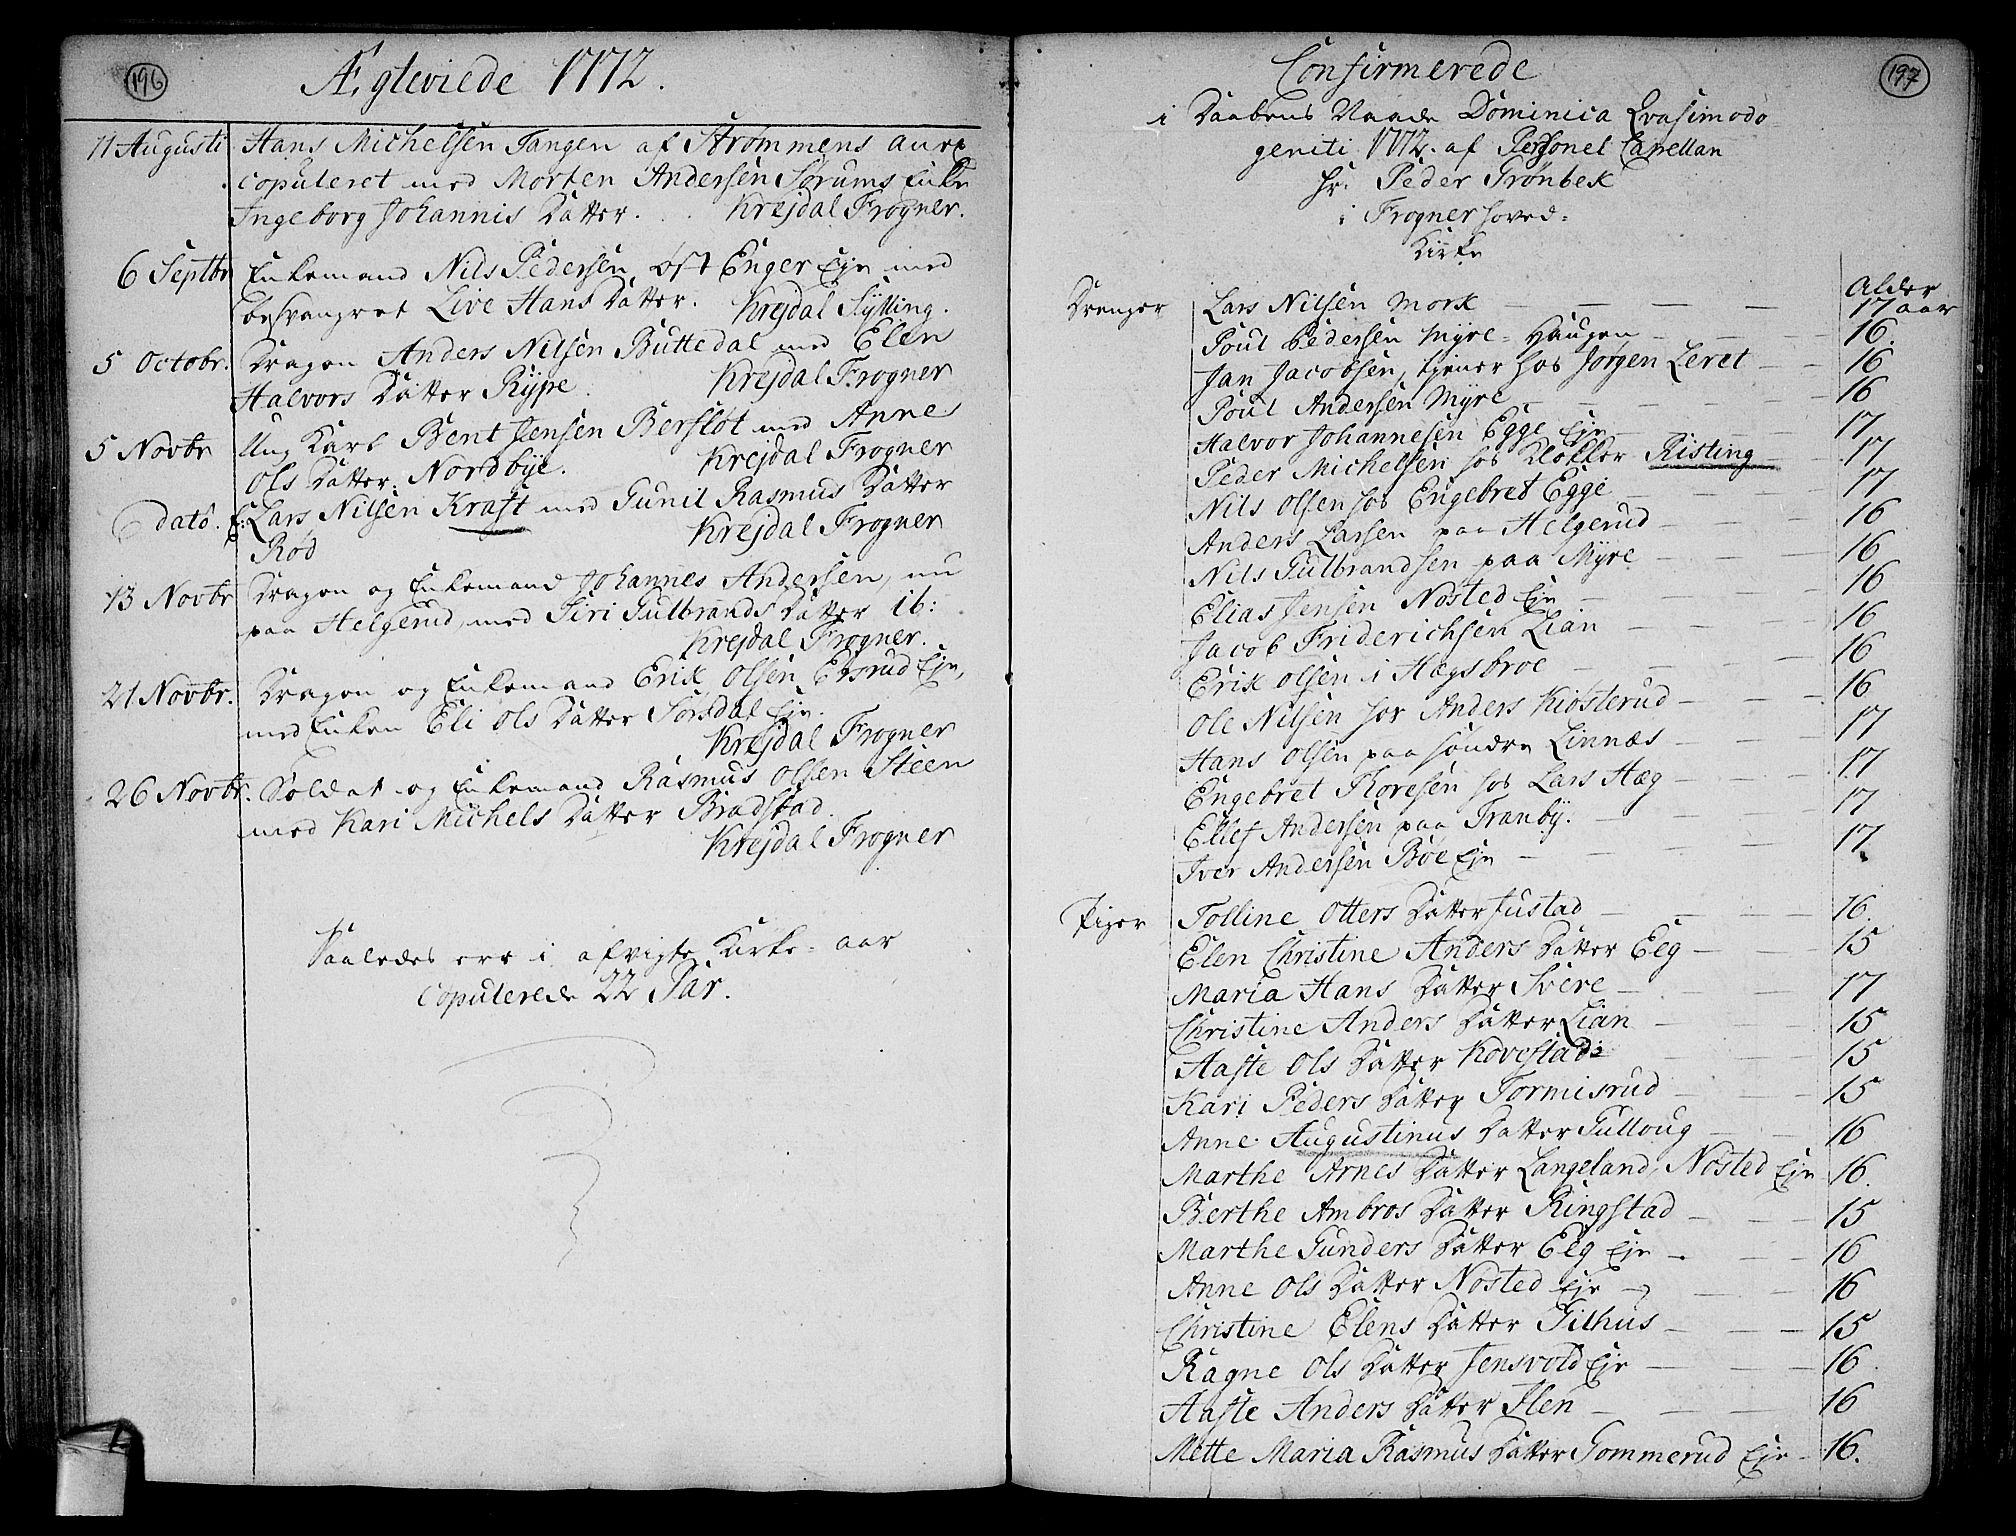 196
Ægteviede 1772.
11 Augusti Hans Michelsen Tangen af Strømmens
copuleret med Morten Andersen Sørums Enke
Ingeborg Johannis Datter. Krejdal Frogner.
6 Septbr Enkemand Nils Pedersen, øst Enger Eje med
besvangret Live Hans Datter. Krejdal Sylling.
5 Octobr. Dragon Anders Nilsen Buttedal med Elen
Halvors Datter Rype. Krejdal Frogner
5 Novbr Ung Karl Bent Jensen Berslot med Anne
Ols Datter Nordbye. Krejdal Frogner
dato. Lars Nilsen Kraft med Gunil Rasmus Datter
Rød Krejdal Frogner
13 Novbr Dragon og Enkemand Johannes Andersen, nu
paa Helgerud, med Siri Gulbrands Datter ib:
Krejdal Frogner.
21 Novbr. Dragon og Enkemand Erik Olsen Ersrud Eje,
med Enken Eli Ols Datter Sørsdal Eje.
Krejdal Frogner
26 Novbr. Soldat og Enkemand Rasmus Olsen Steen
med Kari Michels Datter Bradstad.
Krejdal Frogner
Saaledes ere i afvigte Kirke-aar
copulerede 22 Par.
197
Confirmerede
i Daabens Naade Dominica Qvasimodo
geniti 1772. af Personel Capellan
Hr. Peder Grønbek
i Frogner Hoved-
Kirke
Alder
Drenger Lars Nilsen Mork 17 aar
Poul Pedersen Myre-Haugen 16.
Jan Jacobsen, tjener hos Jørgen Leret 16
Poul Andersen Myre 16
Halvor Johannesen Egge Eje 17
Peder Michelsen hos Klokker Risting 17
Nils Olsen hos Engebret Egge 17
Anders Larsen paa Helgerud 16
Nils Gulbrandsen paa Myre 16
Elias Jensen Nøsted Eje 16
Jacob Friderichsen Lian 16
Erik Olsen i Hægsbroe 16
Ole Nilsen hos Anders Kiøsterud 16
Hans Olsen paa søndre Linnæs 17
Engebret Thoresen hos Lars Hæg 17
Ellef Andersen paa Tranby. 17
Iver Andersen Bøe Eje 17.
Piger Tolline Otters Datter Justad 16.
Elen Christine Anders Datter Eeg 15
Maria Hans Datter Svere 17
Christine Anders Datter Lian 15
Aaste Ols Datter Kovestad 15
Kari Peders Datter Tormisrud 15
Anne Augustinus Datter Gulloug 16
Marthe Arnes Datter Langeland, Nøsted Eje 16.
Berthe Ambros Datter Ringstad 15
Marthe Gunders Datter Eeg Eje 16
Anne Ols Datter Nøsted Eje 16
Christine Elens Datter Gilhus 15
Ragne Ols Datter Jensvold Eje 16.
Aaste Anders Datter Ilen 16
Mette Maria Rasmus Datter Gommerud Eje 16.